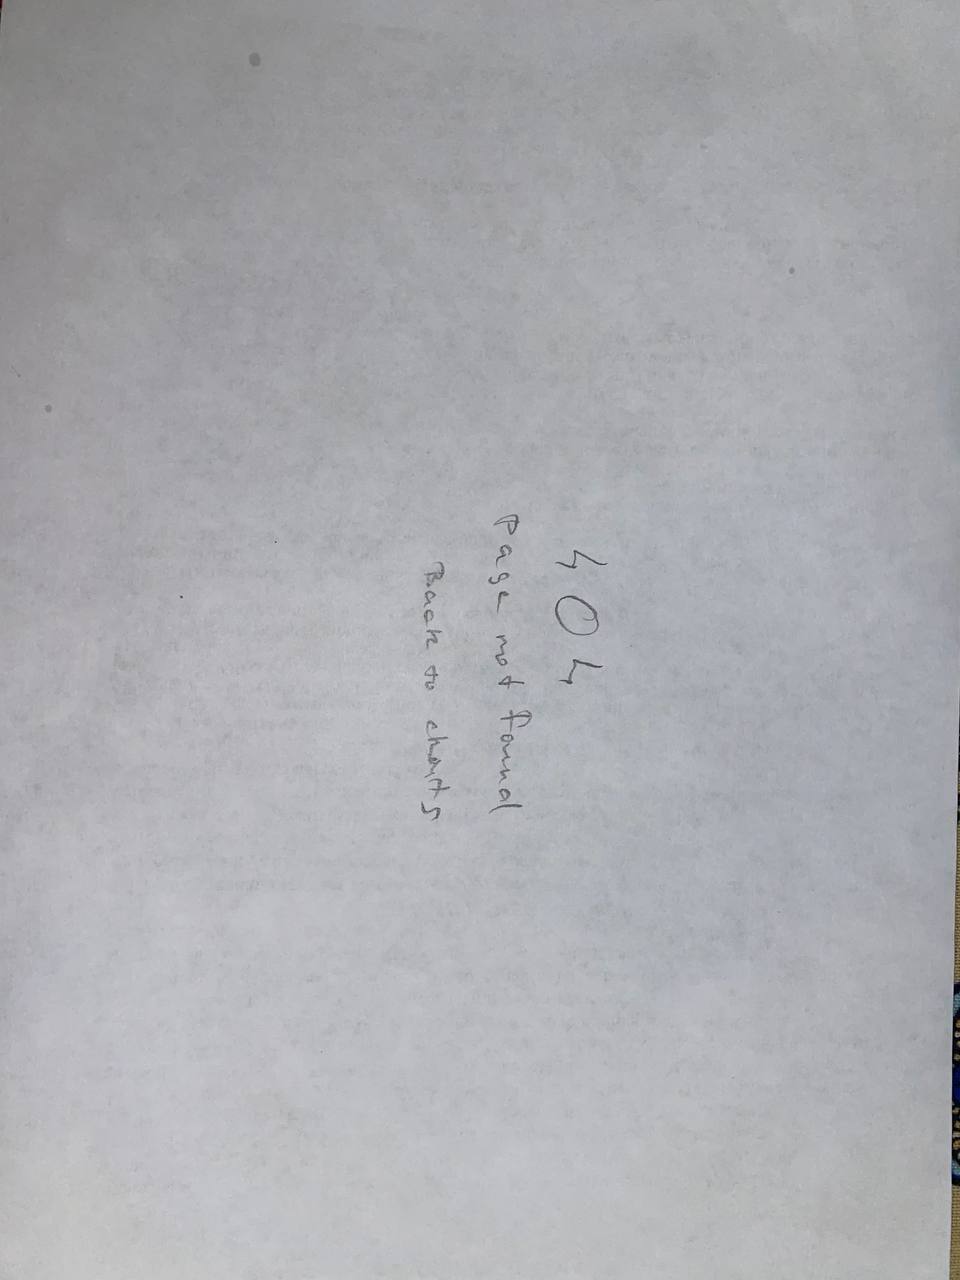 404
Page not found
Back to charts